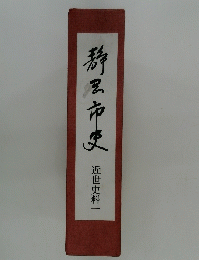 静岡市史
近世史料一